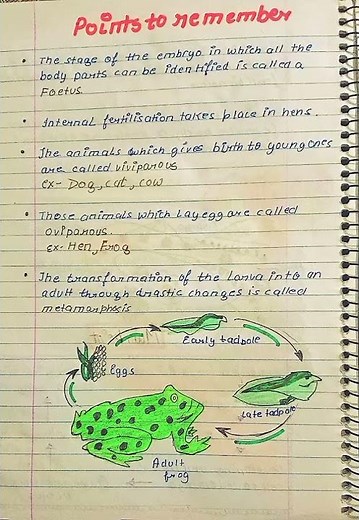 Points to remember
• The stage of the embryo in which all the
body parts can be identified is called a
Foetus.
• Internal fertilisation takes place in hens.
• The animals which gives birth to young ones
are called viviparous
ex- Dog, cat, cow
• Those animals which lay egg are called
oviparous.
ex- Hen, Frog
• The transformation of the larva into an
adult through drastic changes is called
metamorphosis
Early tadpole
Eggs
Late tadpole
Adult
frog